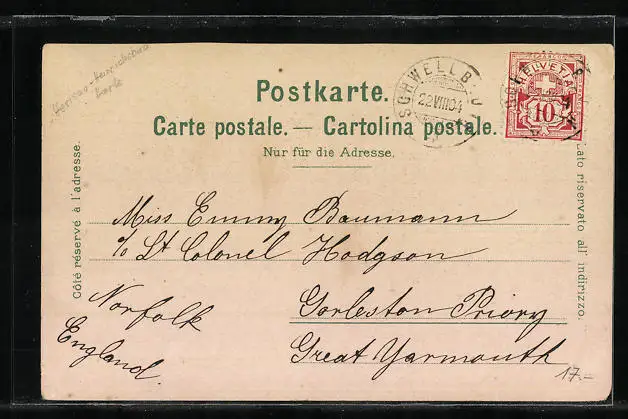 Postkarte.
Carte postale. — Cartolina postale.
Nur für die Adresse.
SCHWELLB
22 VIII 04
HELVETIA
10
Côté réservé à l'adresse.
Lato riservato all' indirizzo.
Miss Emmy Baumann
c/o Lt Colonel Hodgson
Gorleston Priory
Great Yarmouth
Norfolk
England.
17.-